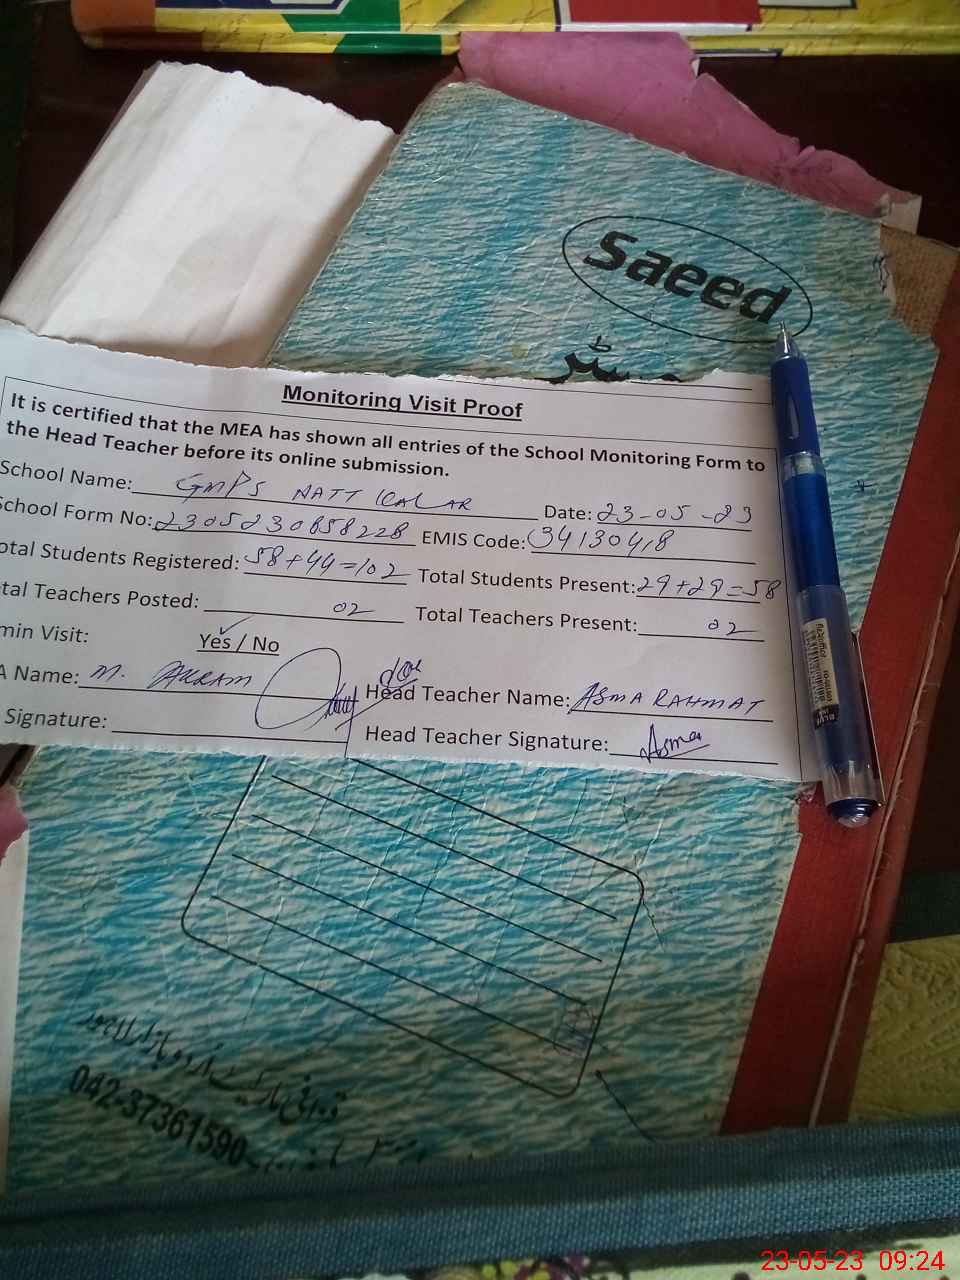 Saeed
Monitoring Visit Proof
It is certified that the MEA has shown all entries of the School Monitoring Form to
the Head Teacher before its online submission.
School Name: GMPS NATT KALAR Date: 23-05-23
School Form No: 2305230858228 EMIS Code: 34130418
otal Students Registered: 58+44=102 Total Students Present: 29+29=58
tal Teachers Posted: 02 Total Teachers Present: 02
min Visit: Yes / No
A Name: M. AKRAM Head Teacher Name: ASMA RAHMAT
Signature: Head Teacher Signature: Asma
042-37361590
23-05-23 09:24